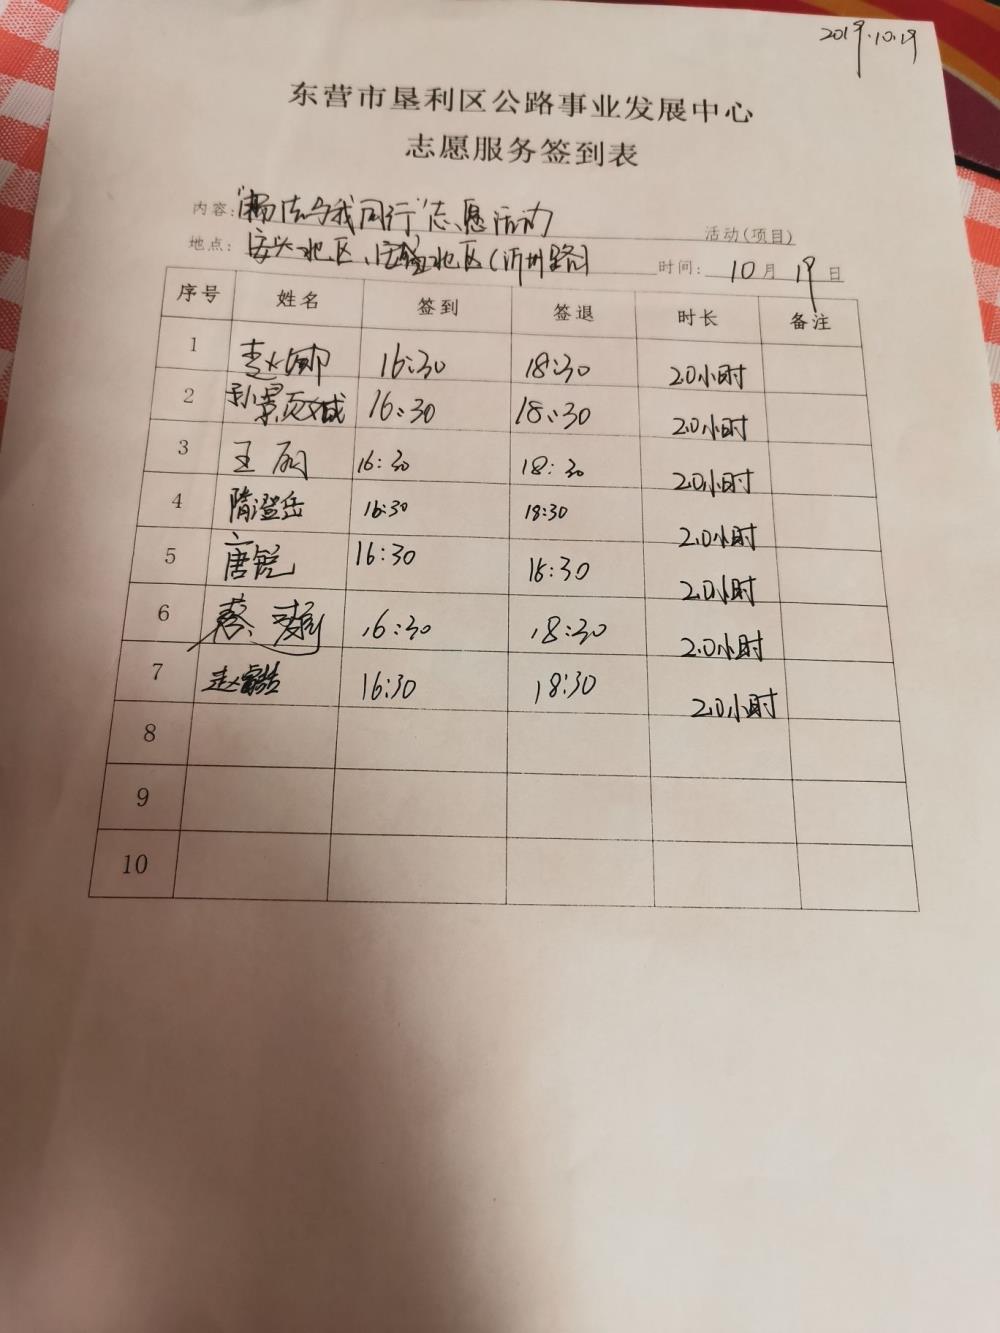 2019.10.19
东营市垦利区公路事业发展中心
志愿服务签到表
内容: 与我同行"志愿活动 活动(项目)
地点: 安兴北区、北区(沂州路) 时间: 10月19日
序号 姓名 签到 签退 时长 备注
1 赵娜 16:30 18:30 2.0小时
2 16:30 18:30 2.0小时
3 王 16:30 18:30 2.0小时
4 隋澄岳 16:30 18:30 2.0小时
5 唐锐 16:30 18:30 2.0小时
6 蔡 16:30 18:30 2.0小时
7 赵 16:30 18:30 2.0小时
8
9
10